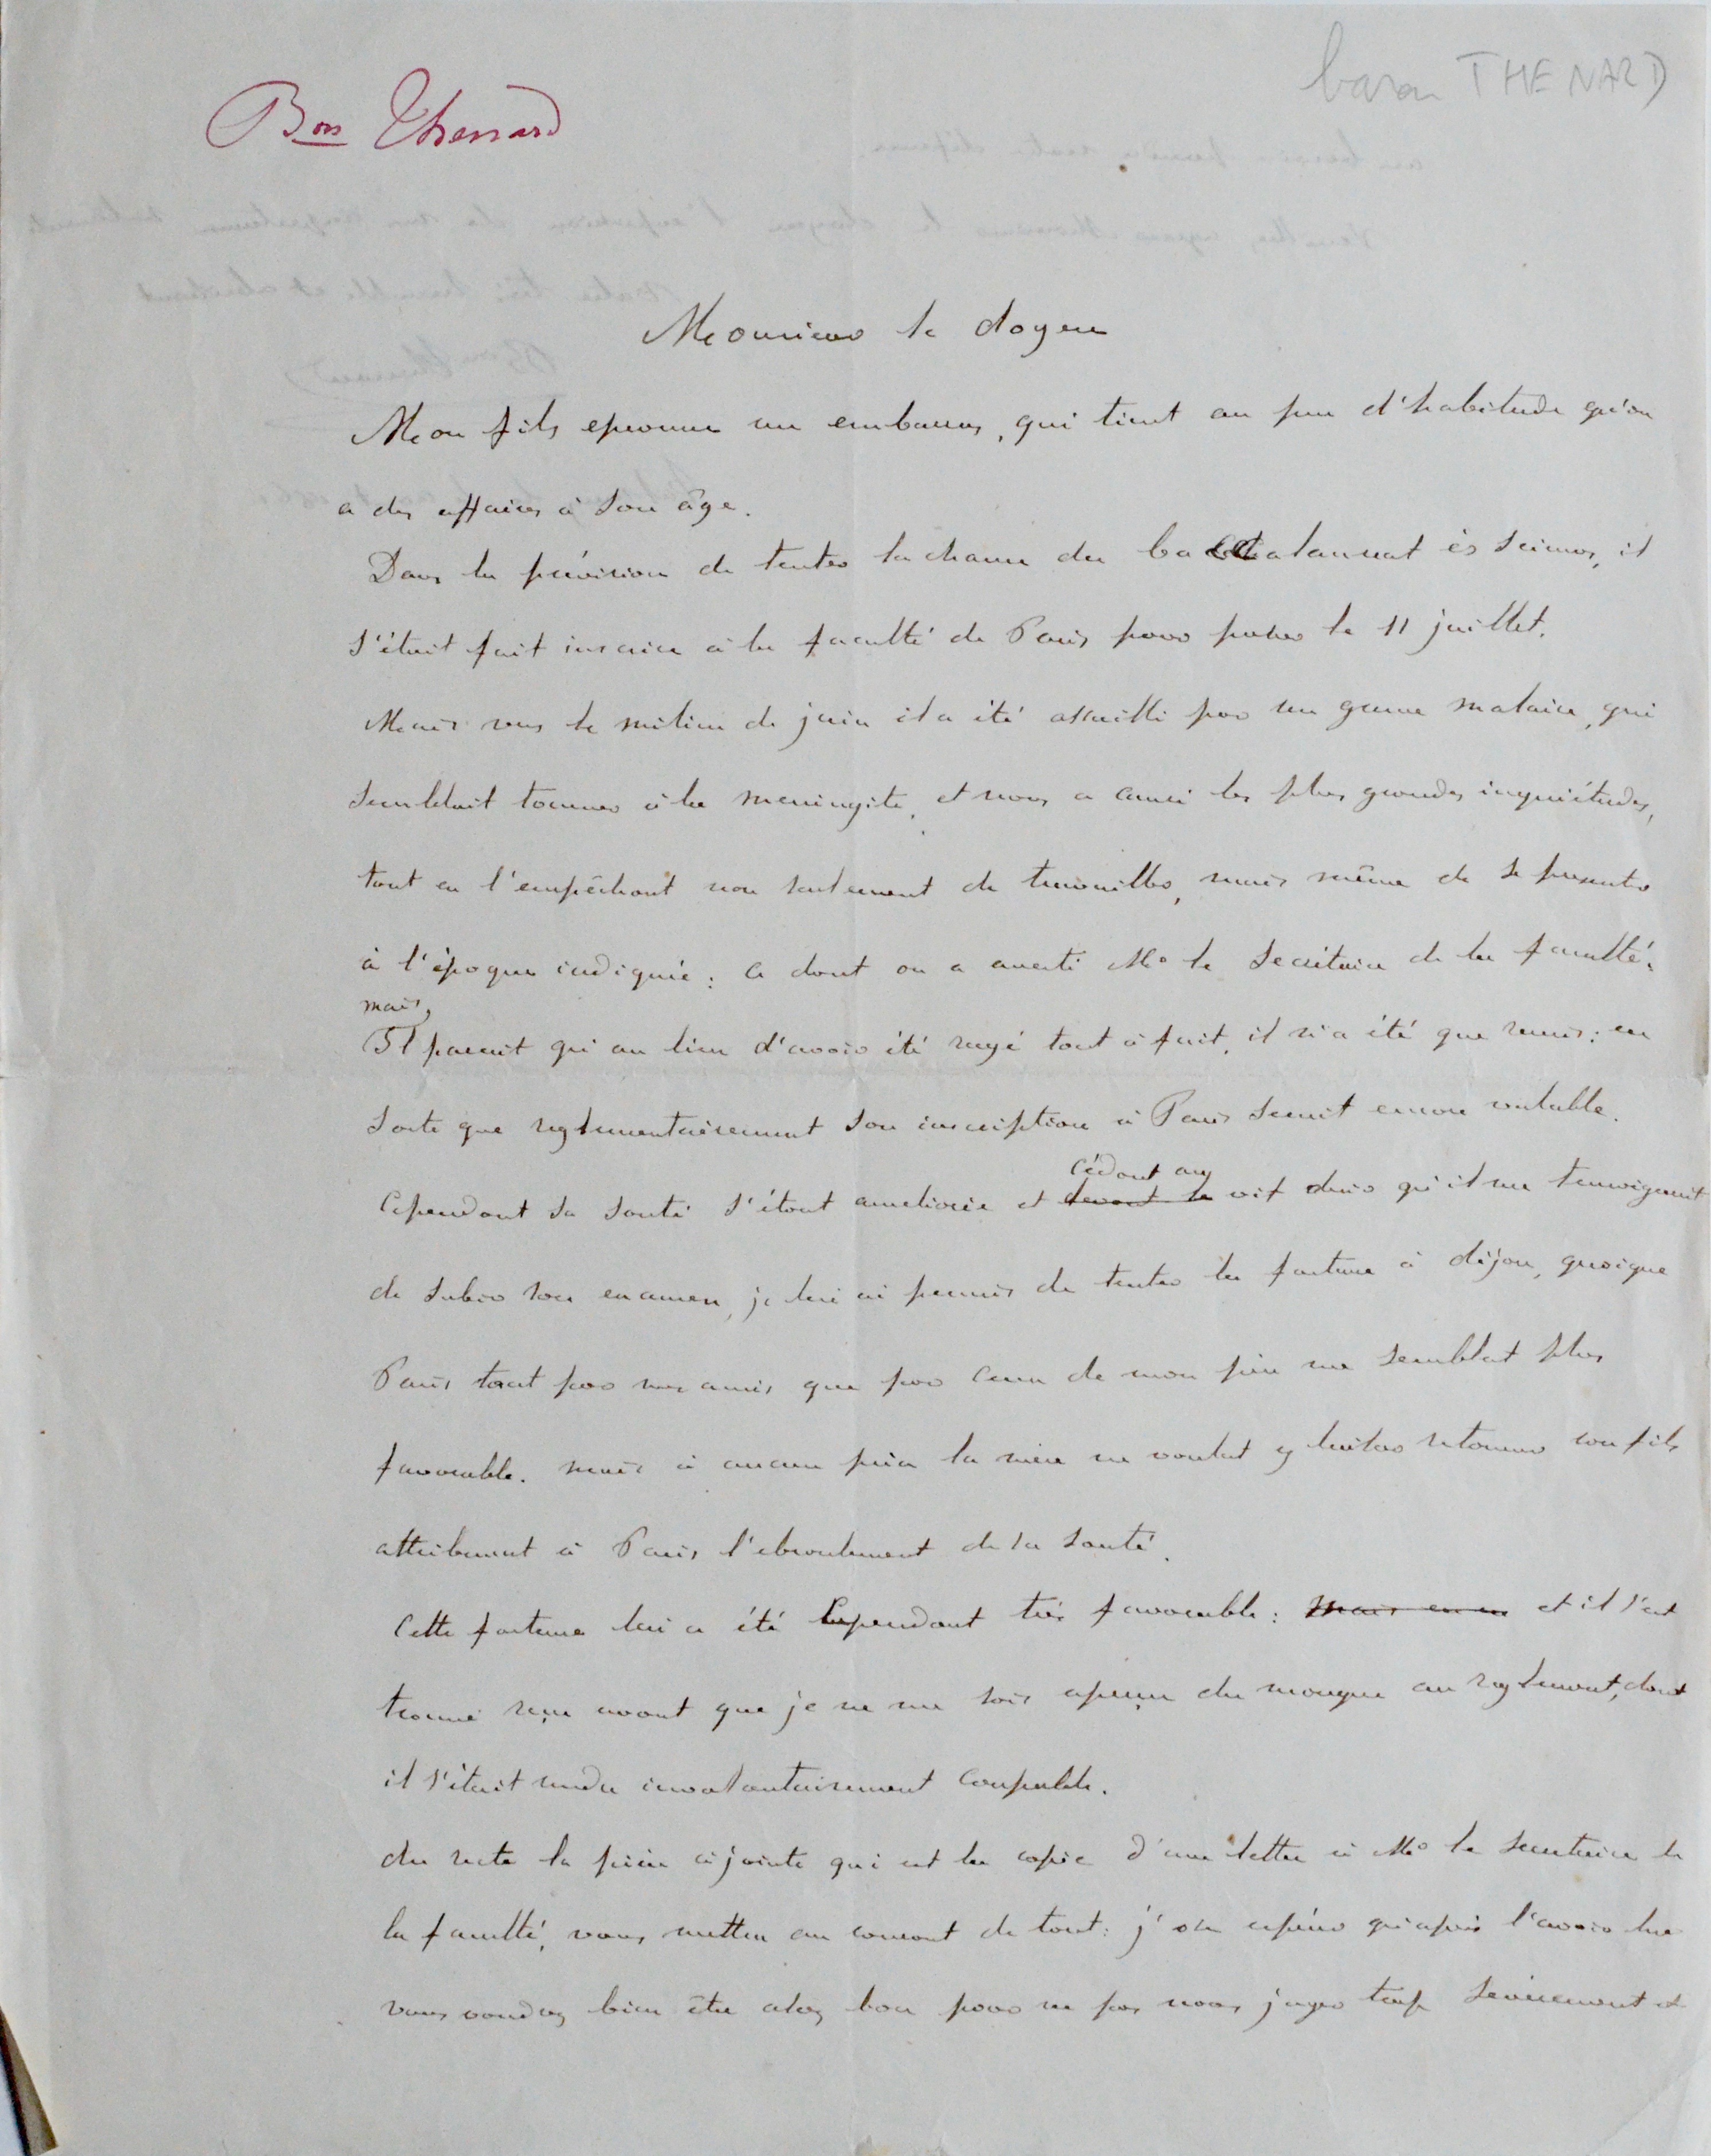 Bon Thenard
baron THENARD
Monsieur le doyen
Mon fils eprouve un embarras, qui tient au peu d'habitude qu'on
a des affaires à son âge.
Dans la prévision de tenter la chance du baccalaureat ès sciences, il
s'était fait inscrire à la faculté de Paris pour passer le 11 juillet.
Mais vers le milieu de juin il a été assailli par un grave malaise, qui
semblait tourner à la meningite, et nous a causé les plus grandes inquiétudes,
tout en l'empêchant non seulement de travailler, mais même de se presenter
à l'époque indiquée : ce dont on a averti Mr le Secrétaire de la faculté.
mais,
Il parait qu'au lieu d'avoir été rayé tout à fait, il n'a été que remis : en
sorte que reglementairement son inscription à Paris serait encore valable.
Cependant sa santé s'étant ameliorée et
cédant au
devant le vif desir qu'il me temoignait
de subir son examen, je lui ai permis de tenter la fortune à dijon, quoique
Paris tant par mes amis que par ceux de mon père me semblat plus
favorable. mais à aucun prix la mère ne voulut y laisser retourner son fils
attribuant à Paris l'ebranlement de sa santé.
Cette fortune lui a été cependant très favorable : mais en et il s'est
trouvé reçu avant que je ne me sois aperçu du manque au reglement, dont
il s'était rendu involontairement coupable.
du reste la pièce ci jointe qui est la copie d'une lettre à Mr le secretaire de
la faculté, vous mettra au courant de tout : j'ose espérer qu'après l'avoir lue
vous voudrez bien être assez bon pour ne pas nous juger trop sévèrement et